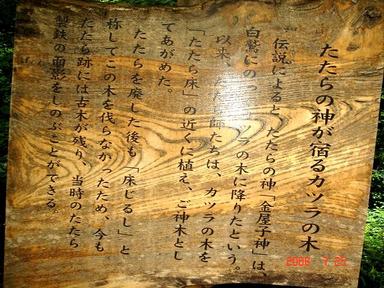 たたらの神が宿るカツラの木
伝説によると、たたらの神「金屋子神」は、
白鷺にのっ ラの木に降りたという。
以来、 師たちは、カツラの木を
「たたら床」の近くに植え、ご神木とし
てあがめた。
たたらを廃した後も「床じるし」と
称してこの木を伐らなかったため、今も
たたら跡には古木が残り、当時のたたら
製鉄の面影をしのぶことができる。
2008 7 25